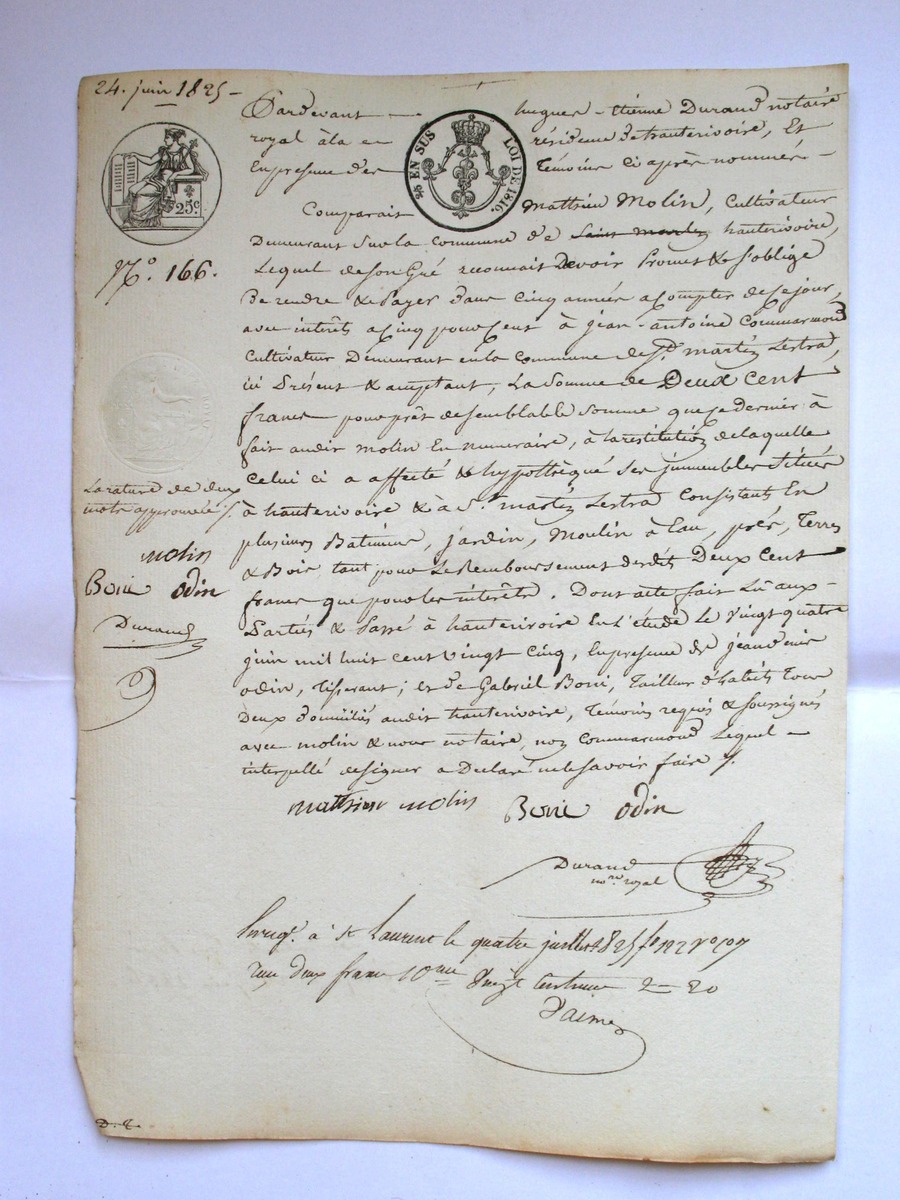 24. juin 1825 –
Pardevant hugues - étienne Durand notaire
royal à la résidence de hauterivoire, Et
En presence des Témoins ci après nommés –
EN SUS LOI DE 1816.
25 c.
N.o 166.
Comparait Mathieu Molin, Cultivateur
Demeurant Sur la Commune de Saint martin hauterivoire,
Lequel de Son Gré reconnait Devoir Promet & S'oblige
De rendre & Payer dans Cinq années a Compter de Ce jour,
avec interêts a Cinq pour Cent à jean-antoine Commarmond
Cultivateur Demeurant en la Commune de St. martin Lestra,
ici Présent & acceptant, La Somme de Deux Cent
francs pour prêt de Semblable Somme que Ce dernier à
fait audit molin En numeraire, à la restitution de laquelle
Celui ci a affecté & hypothèqué Ses immeubles Situés
à hauterivoire & à St. martin Lestra Consistants En
plusieurs Batimens, jardin, Moulin à Eau, prés, Terres
& Bois tant pour Le Remboursement desdits Deux Cent
francs que pour les interêts. Dont acte fait Lu aux -
Parties & Passé à hauterivoire En L'étude Le Vingt quatre
juin mil huit Cent Vingt Cinq, En presence de jean denis
odin, Tisserant; et de Gabriel Boni, Tailleur d'habits Tous
Deux Domiciliés audit hauterivoire, Témoins requis & Soussignés
avec molin & nous notaire, non Commarmond Lequel –
interpellé de signer a Déclaré ne le Savoir faire /.
La rature de deux
mots approuvée /.
molin
Boni odin
Durand
mathieu molin Boni odin
Durand
no.re royal
Enregé. à St Laurent le quatre juillet 1825 fo 122 Vo
reçu deux francs 10me Vingt Centimes 2 – 20
D. T.